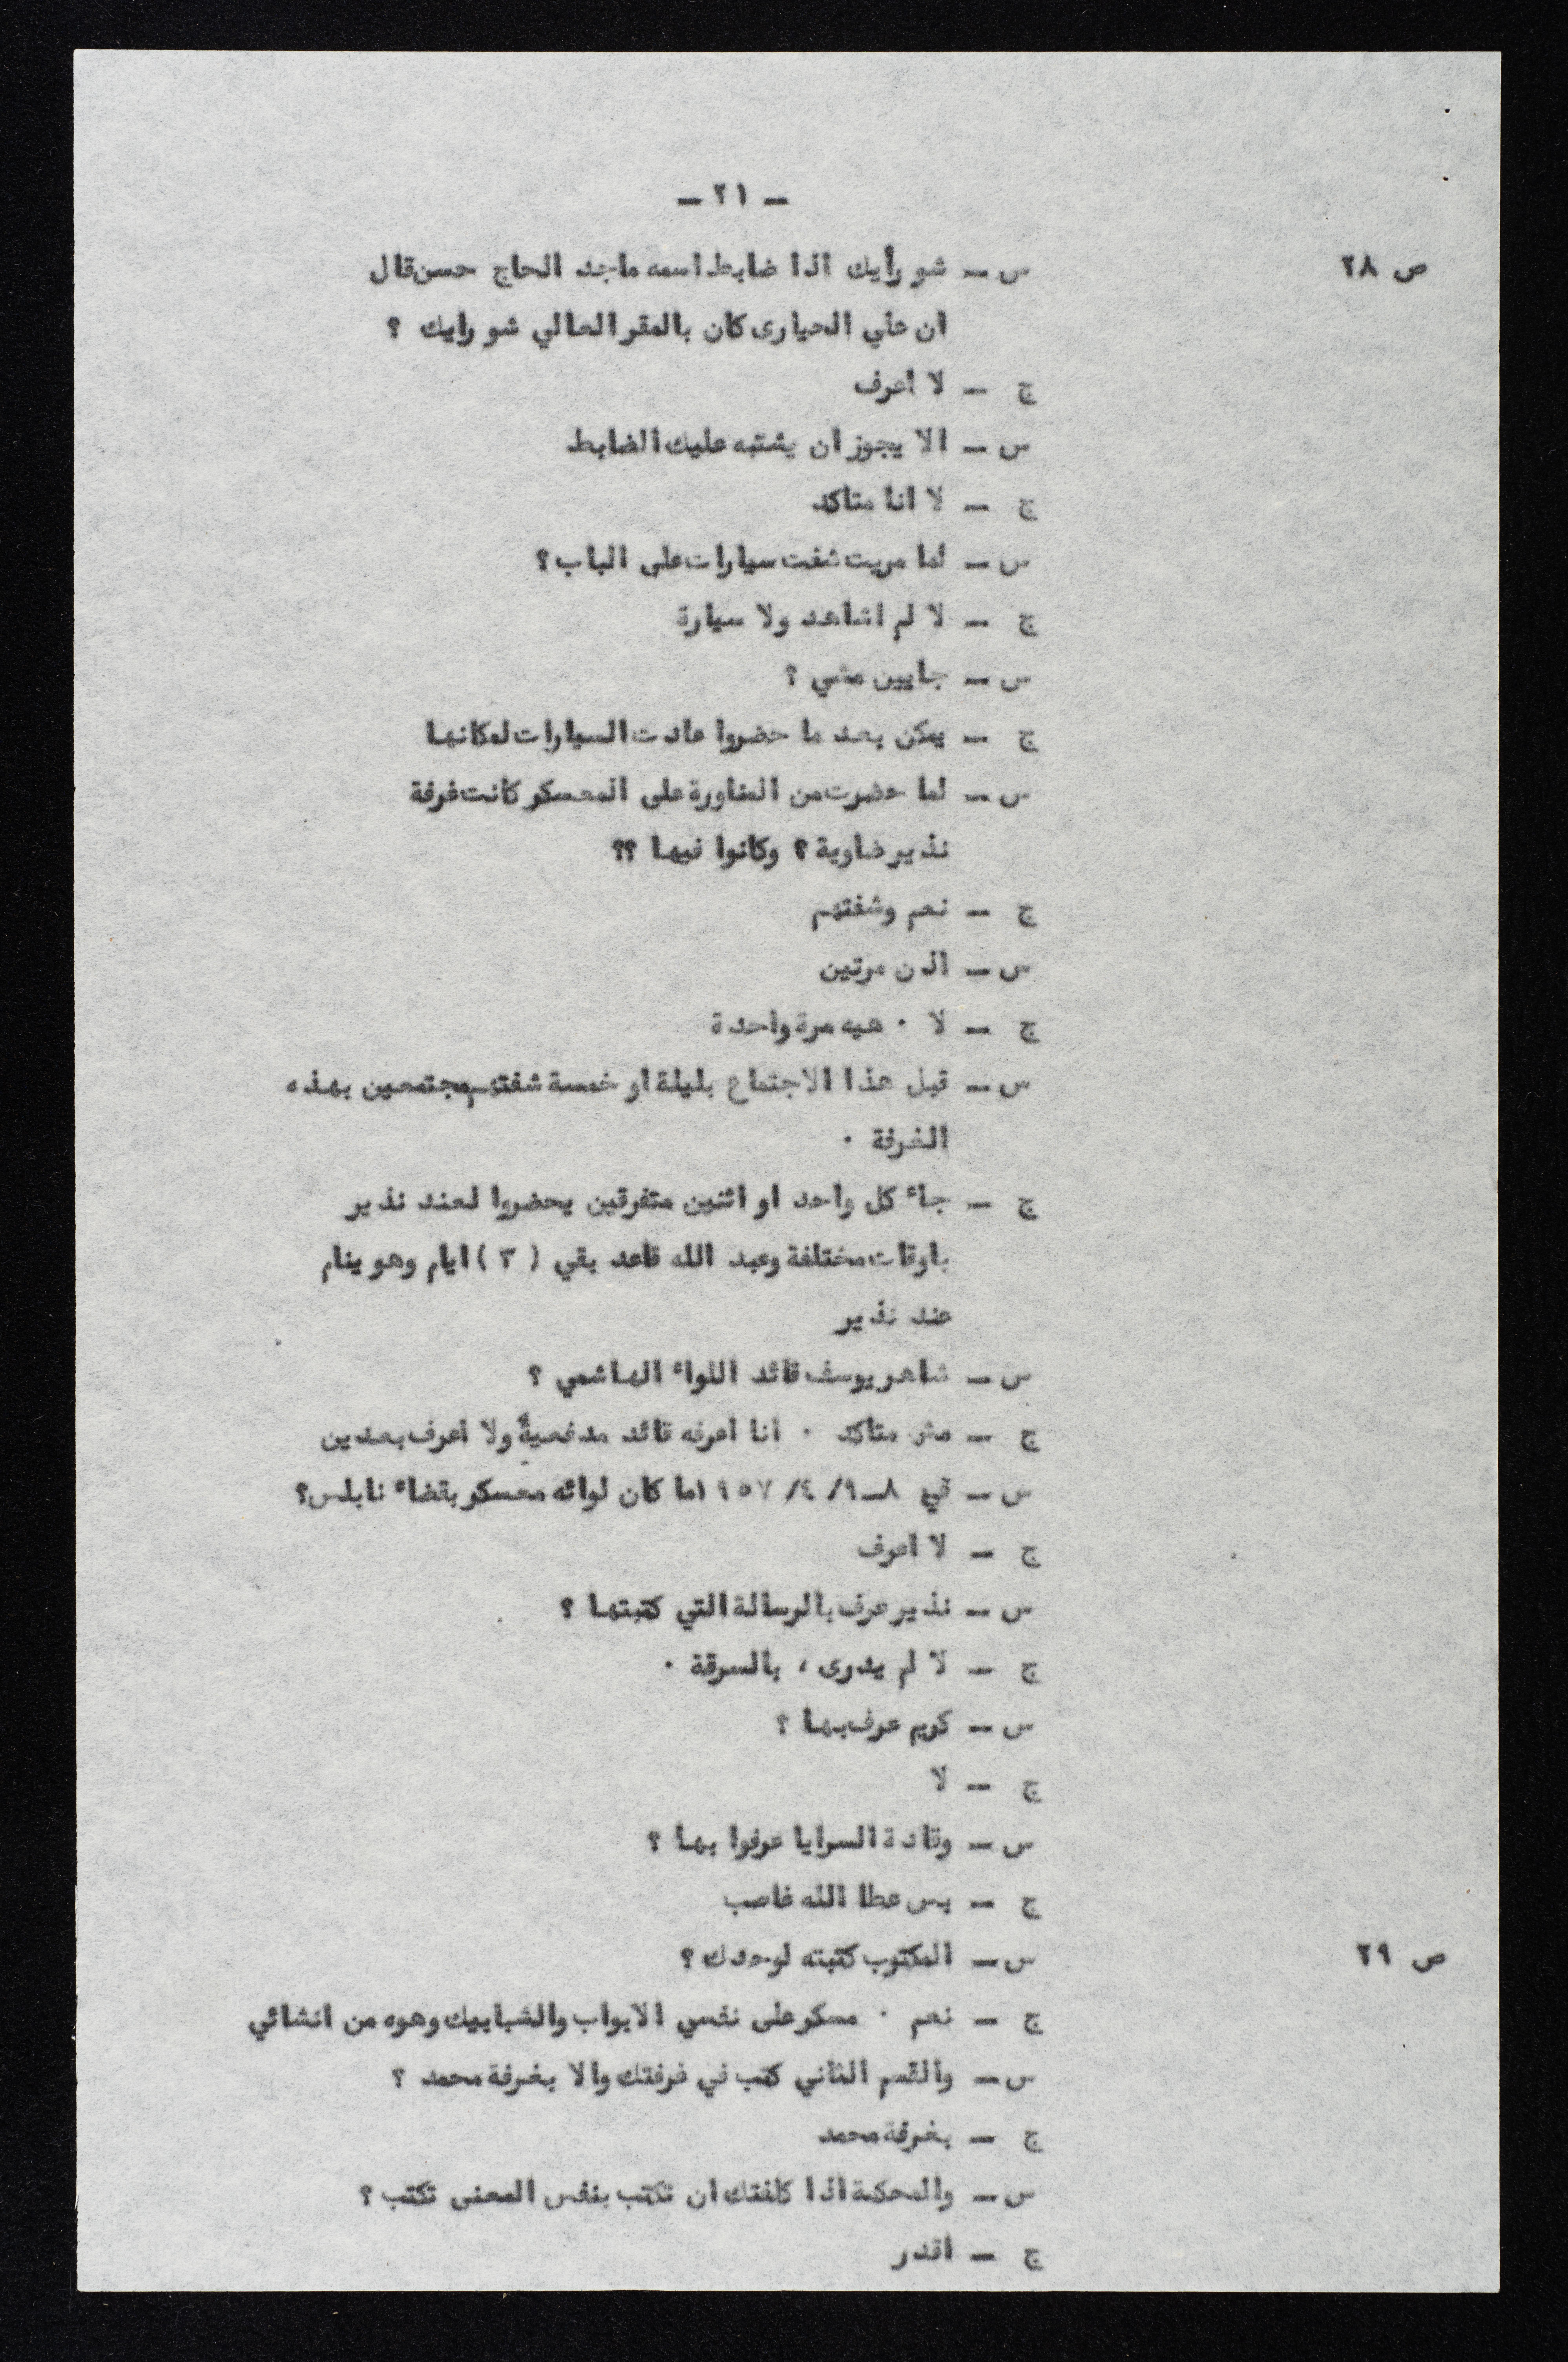 — ٢١ —
ص ٢٨ س — شو رأيك اذا ضابط اسمه ماجد الحاج حسن قال
ان علي الحيارى كان بالمقر العالي شو رايك ؟
ج — لا اعرف
س — الا يجوز ان يشتبه عليك الضابط
ج — لا انا متاكد
س — لما مريت شفت سيارات على الباب ؟
ج — لا لم اشاهد ولا سيارة
س — جايين مشي ؟
ج — يمكن بعد ما حضروا عادت السيارات لمكانها
س — لما حضرت من المناورة على المعسكر كانت غرفة
نذير ضاوية ؟ وكانوا فيها ؟؟
ج — نعم وشفتهم
س — اذن مرتين
ج — لا ٠ هيه مرة واحدة
س — قبل هذا الاجتماع بليلة او خمسة شفتهم مجتمعين بهذه
الغرفة ٠
ج — جاء كل واحد او اثنين متفرقين يحضروا لعند نذير
باوقات مختلفة وعبد الله قاعد بقي ( ٣ ) ايام وهو ينام
عند نذير
س — شاهر يوسف قائد اللواء الهاشمي ؟
ج — مش متاكد ٠ انا اعرفه قائد مدفعية ولا اعرف بعدين
س — في ٨ــ٩/ ٤/ ١٩٥٧ ما كان لوائه معسكر بقضاء نابلس؟
ج — لا اعرف
س — نذير عرف بالرسالة التي كتبتها ؟
ج — لا لم يدرى ، بالسرقة ٠
س — كريم عرف بها ؟
ج — لا
س — وقادة السرايا عرفوا بها ؟
ج — بس عطا الله غاصب
ص ٢٩ س — المكتوب كتبته لوحدك ؟
ج — نعم ٠ مسكر على نفسي الابواب والشبابيك وهوه من انشائي
س — والقسم الثاني كتب في غرفتك والا بغرفة محمد ؟
ج — بغرفة محمد
س — والمحكمة اذا كلفتك ان تكتب بنفس المعنى تكتب ؟
ج — اقدر